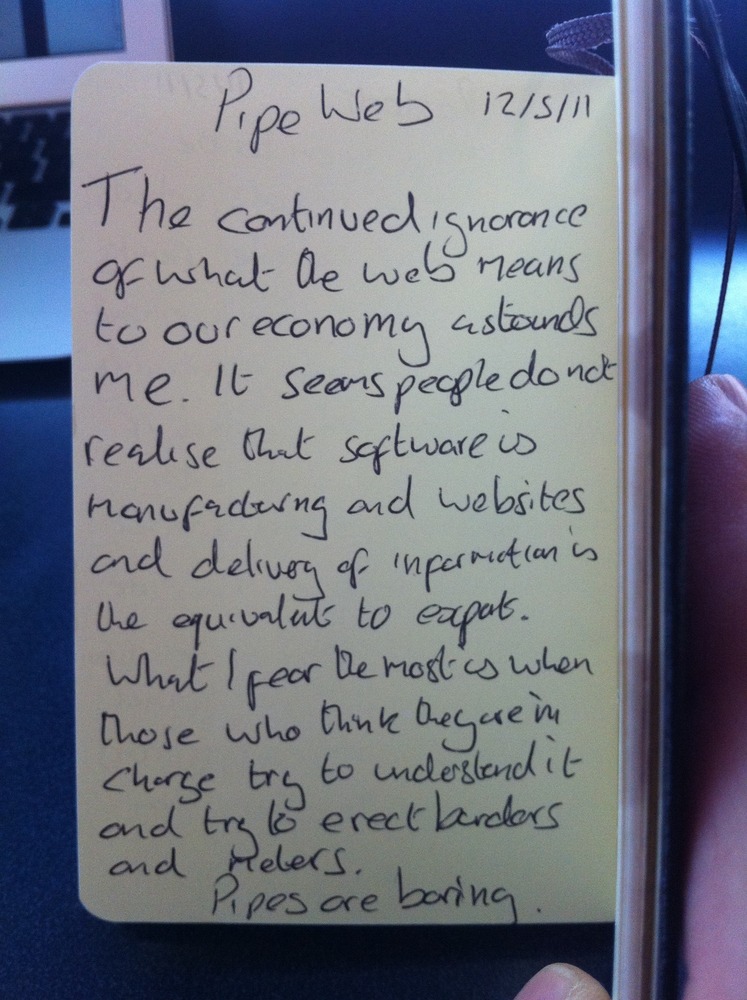 Pipe Web 12/5/11
The continued ignorance
of what the web means
to our economy astounds
me. It seems people do not
realise that software is
manufacturing and websites
and delivery of information is
the equivalent to export.
What I fear the most is when
those who think they are in
charge try to understand it
and try to erect borders
and meters.
Pipes are boring.